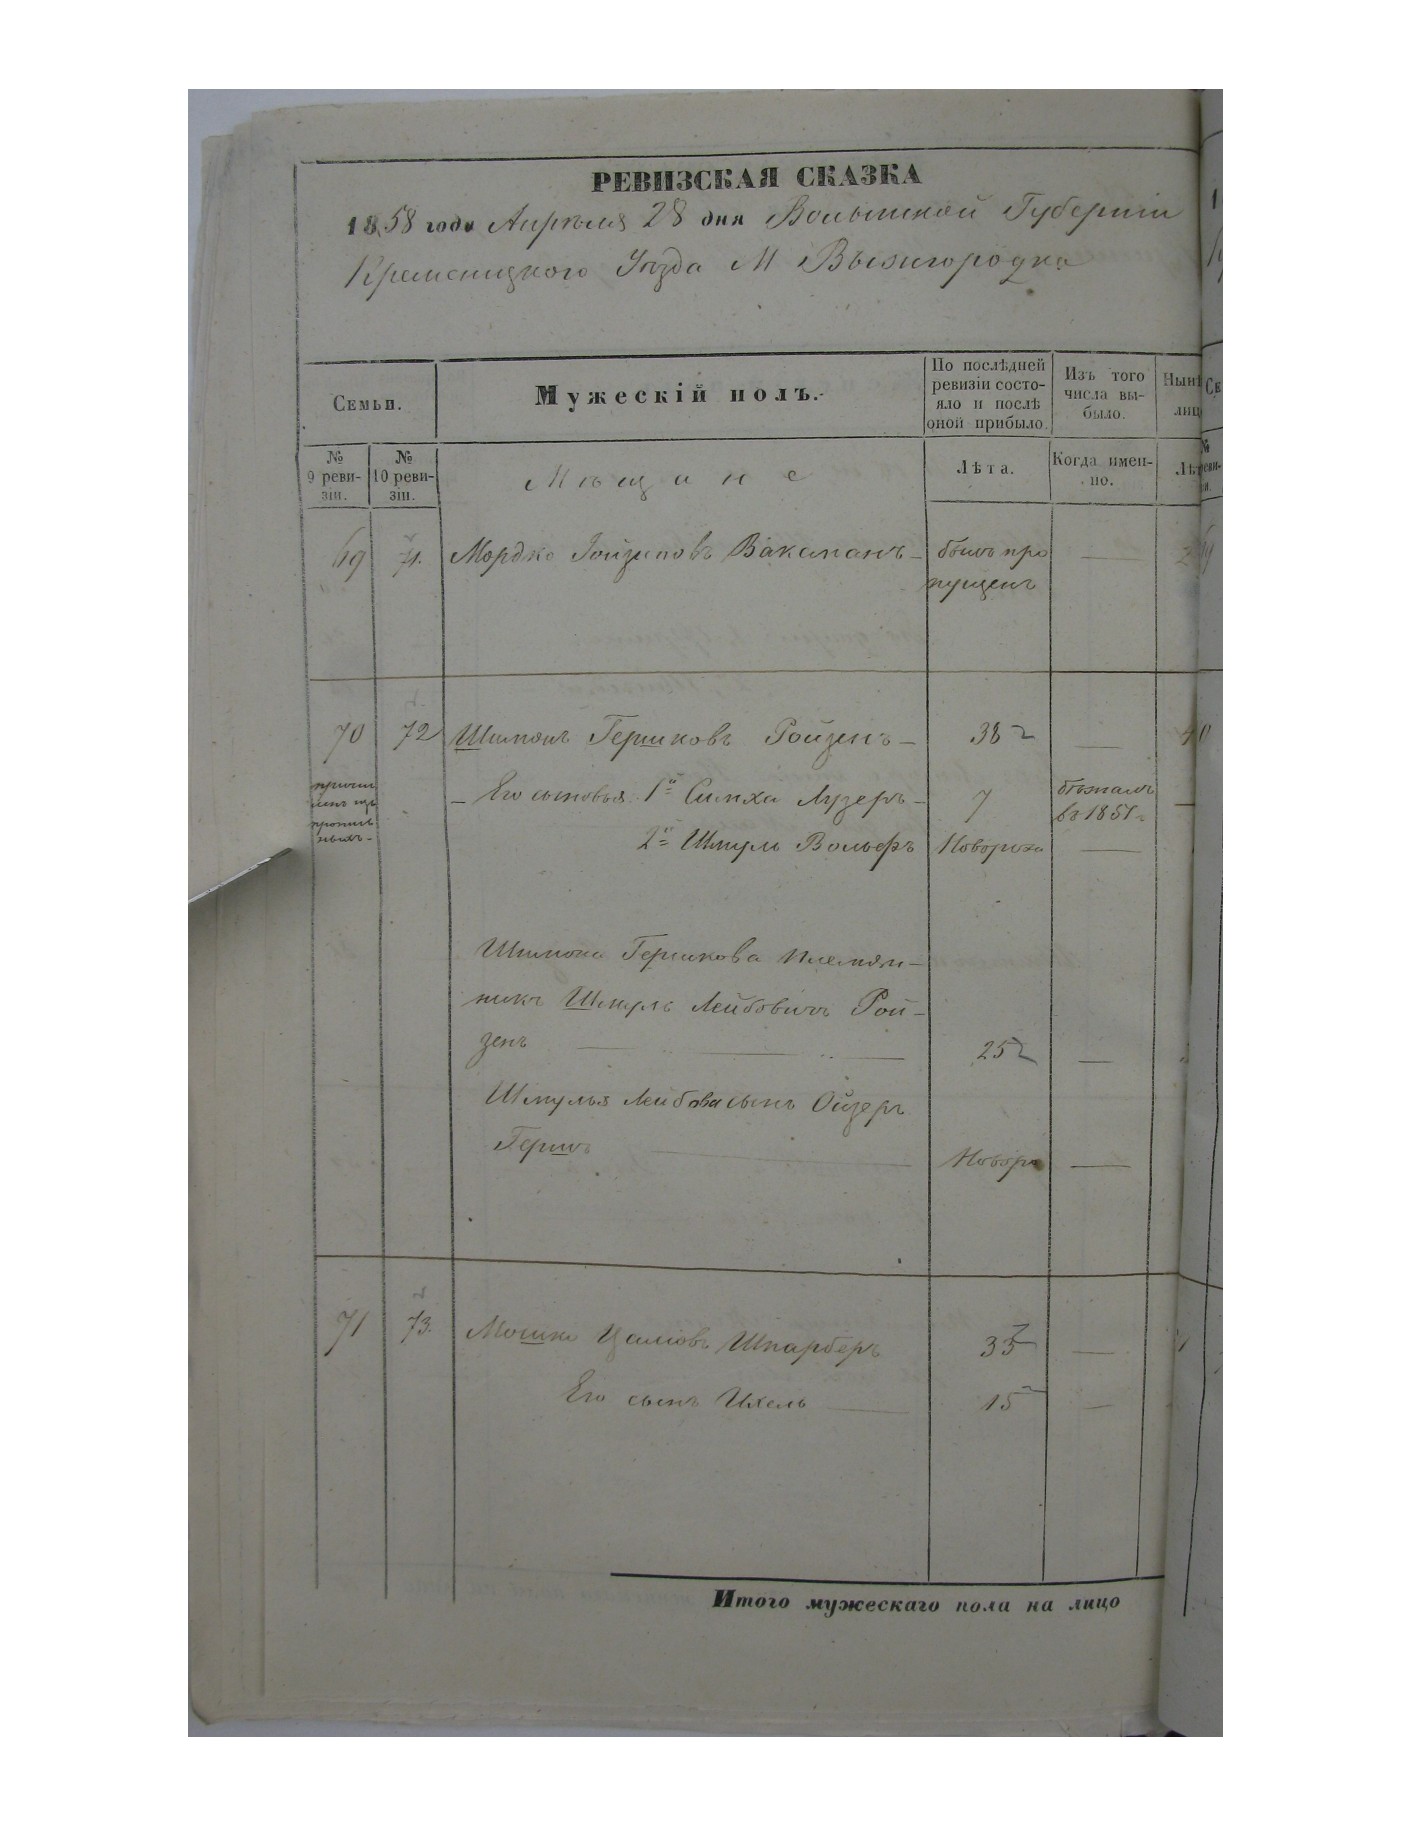 РЕВИЗСКАЯ СКАЗКА
1858 года Апреля 28 дня Волынской Губернiи
Кременецкого Уезда М Вышгородка
Семьи.
Мужескiй полъ.
По послѣдней ревизiи состо-
яло и послѣ
оной прибыло.
Изъ того
числа вы-
было.
Нынѣ
лиц
№
9 реви-
зiи.
№
10 реви-
зiи.
Мѣщане
Лѣта.
Когда имен-
но.
Лѣт
69 71. Мордко Ваксманъ — былъ про —
пущенъ
70 72 Шимонъ Гершковъ Ройзенъ — 38 —
причи
слен изъ
— Его сыновья 1й Симха Лузеръ — 7 бѣжалъ
въ 1851
2й Шмуль Вольфъ Новорож —
Шимона Гершкова племян-
никъ Шмуль Лейбовичъ Рой-
зенъ — 25 —
Шмулья Лейбова сынъ Ойзеръ
Гершъ — Новоро —
71 73. Мошко Шпарберъ 33 —
Его сынъ Ихель — 15 —
Итого мужескаго пола на лицо